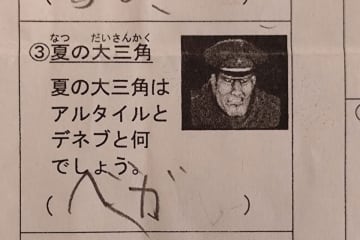 なつ だいさんかく
③夏の大三角
夏の大三角は
アルタイルと
デネブと何
でしょう。
(ベガ)